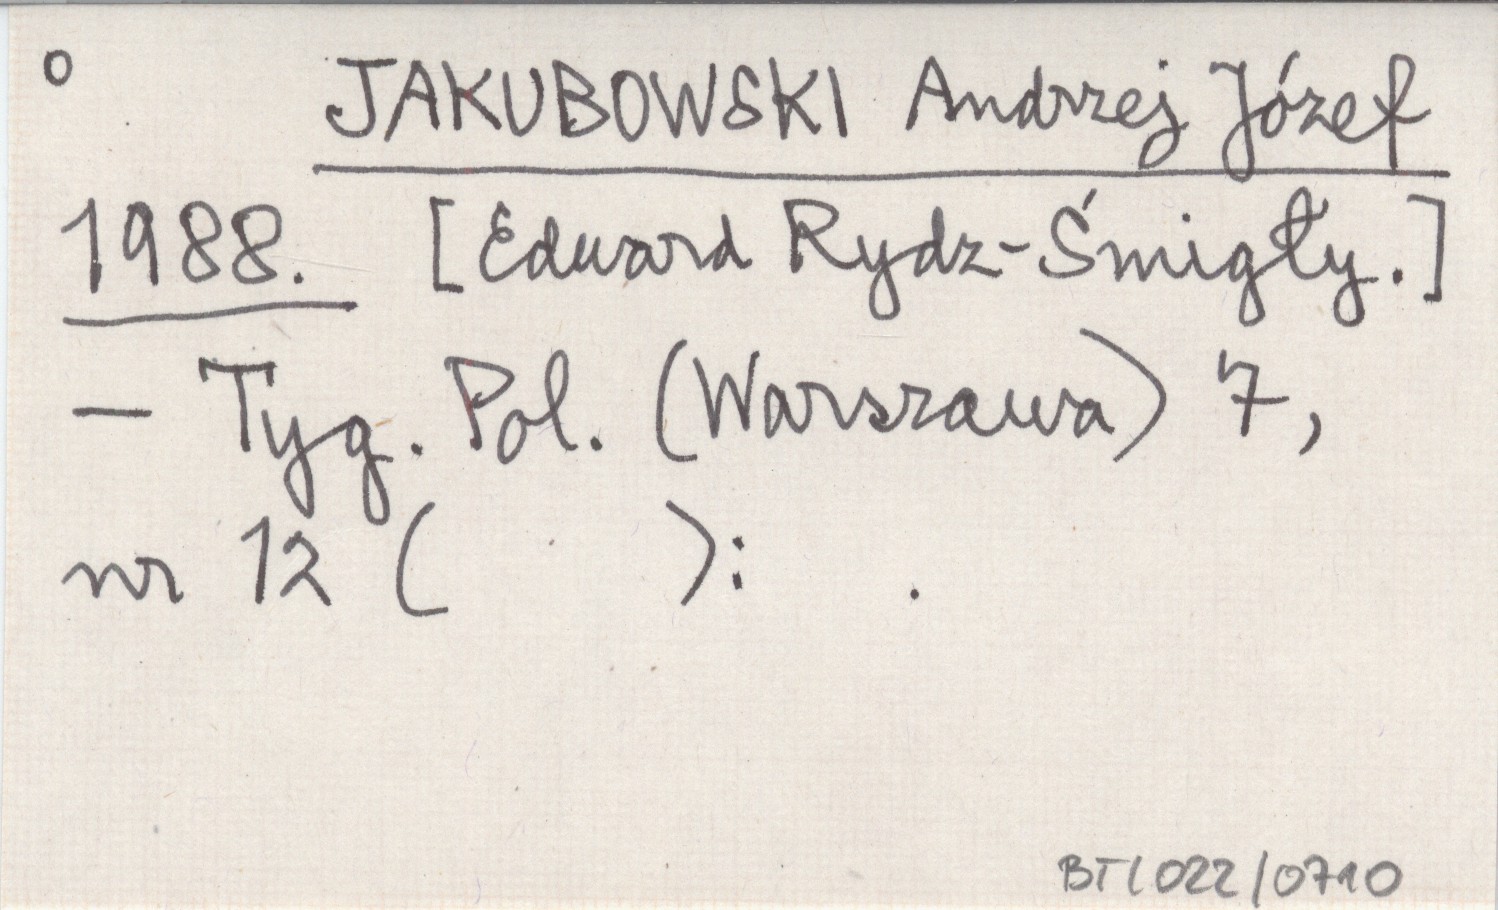 o JAKUBOWSKI Andrzej Józef
1988. [Edward Rydz-Śmigły.]
— Tyg. Pol. (Warszawa) 7,
nr 12 ( ): .
BT/022/0710